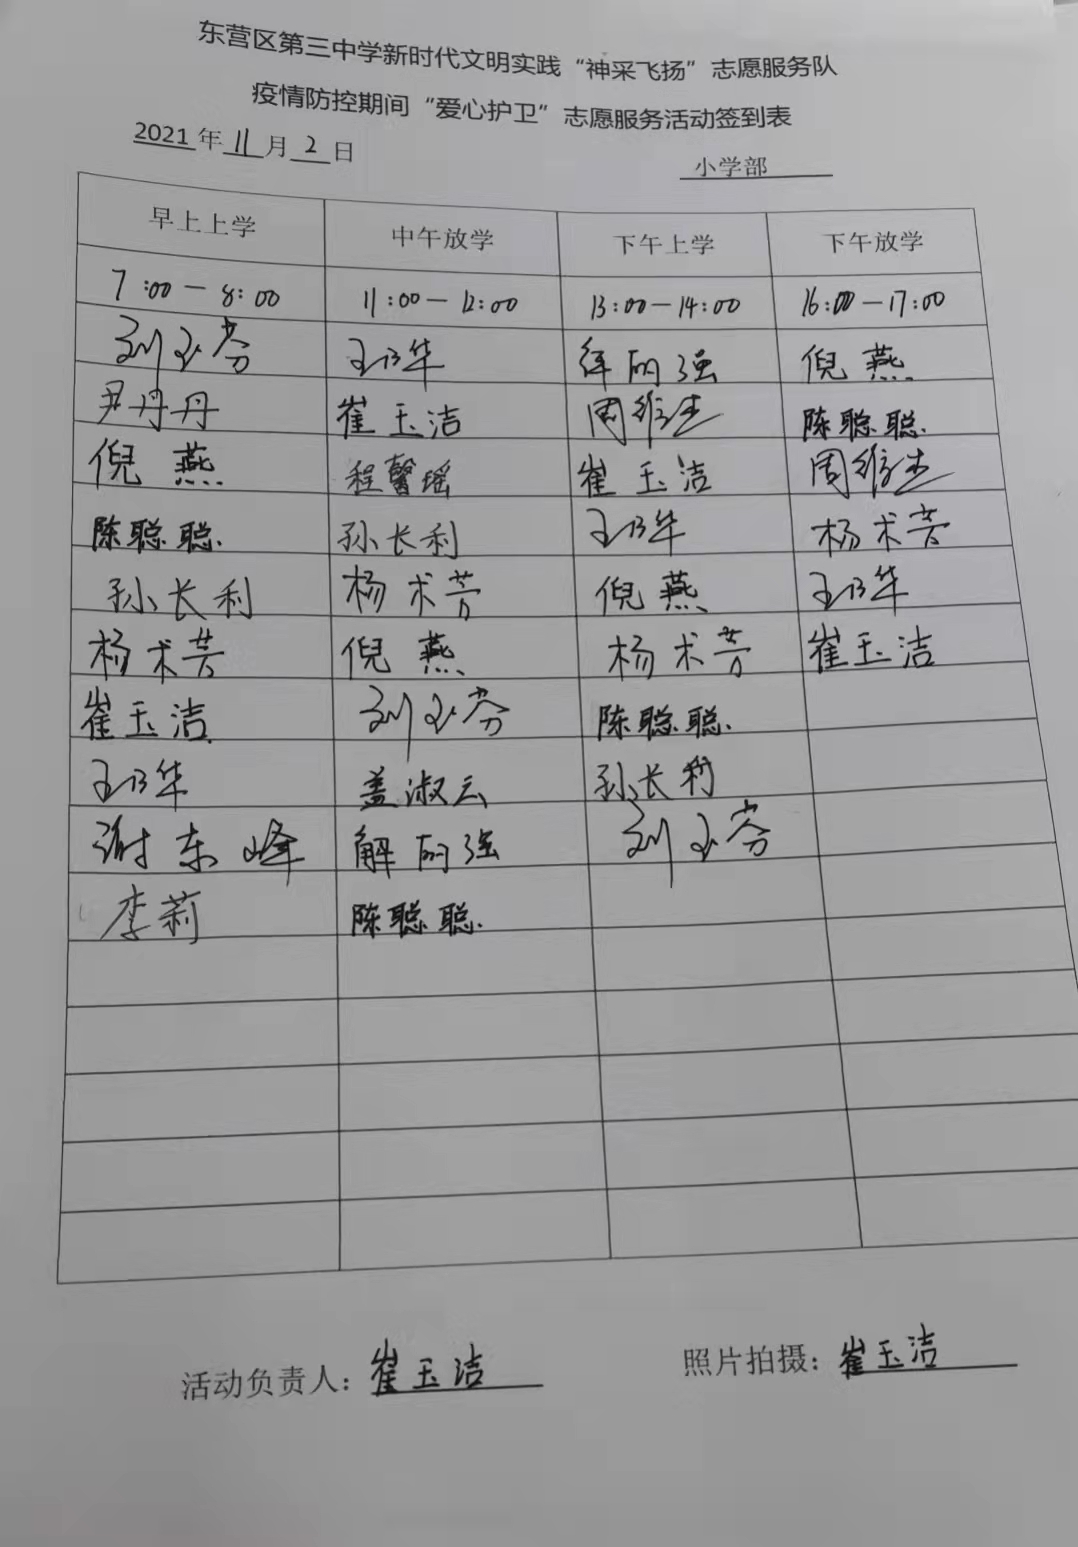 东营区第三中学新时代文明实践“神采飞扬”志愿服务队
疫情防控期间“爱心护卫”志愿服务活动签到表
2021年11月2日 小学部
早上上学 中午放学 下午上学 下午放学
7:00-8:00 11:00-12:00 13:00-14:00 16:00-17:00
刘玉芬 王乃华 解丽强 倪燕
尹丹丹 崔玉洁 周维杰 陈聪聪
倪燕 程馨瑶 崔玉洁 周维杰
陈聪聪 孙长利 王乃华 杨术芳
孙长利 杨术芳 倪燕 王乃华
杨术芳 倪燕 杨术芳 崔玉洁
崔玉洁 刘玉芬 陈聪聪
王乃华 盖淑云 孙长利
谢东峰 解丽强 刘玉芬
李莉 陈聪聪
活动负责人：崔玉洁 照片拍摄：崔玉洁